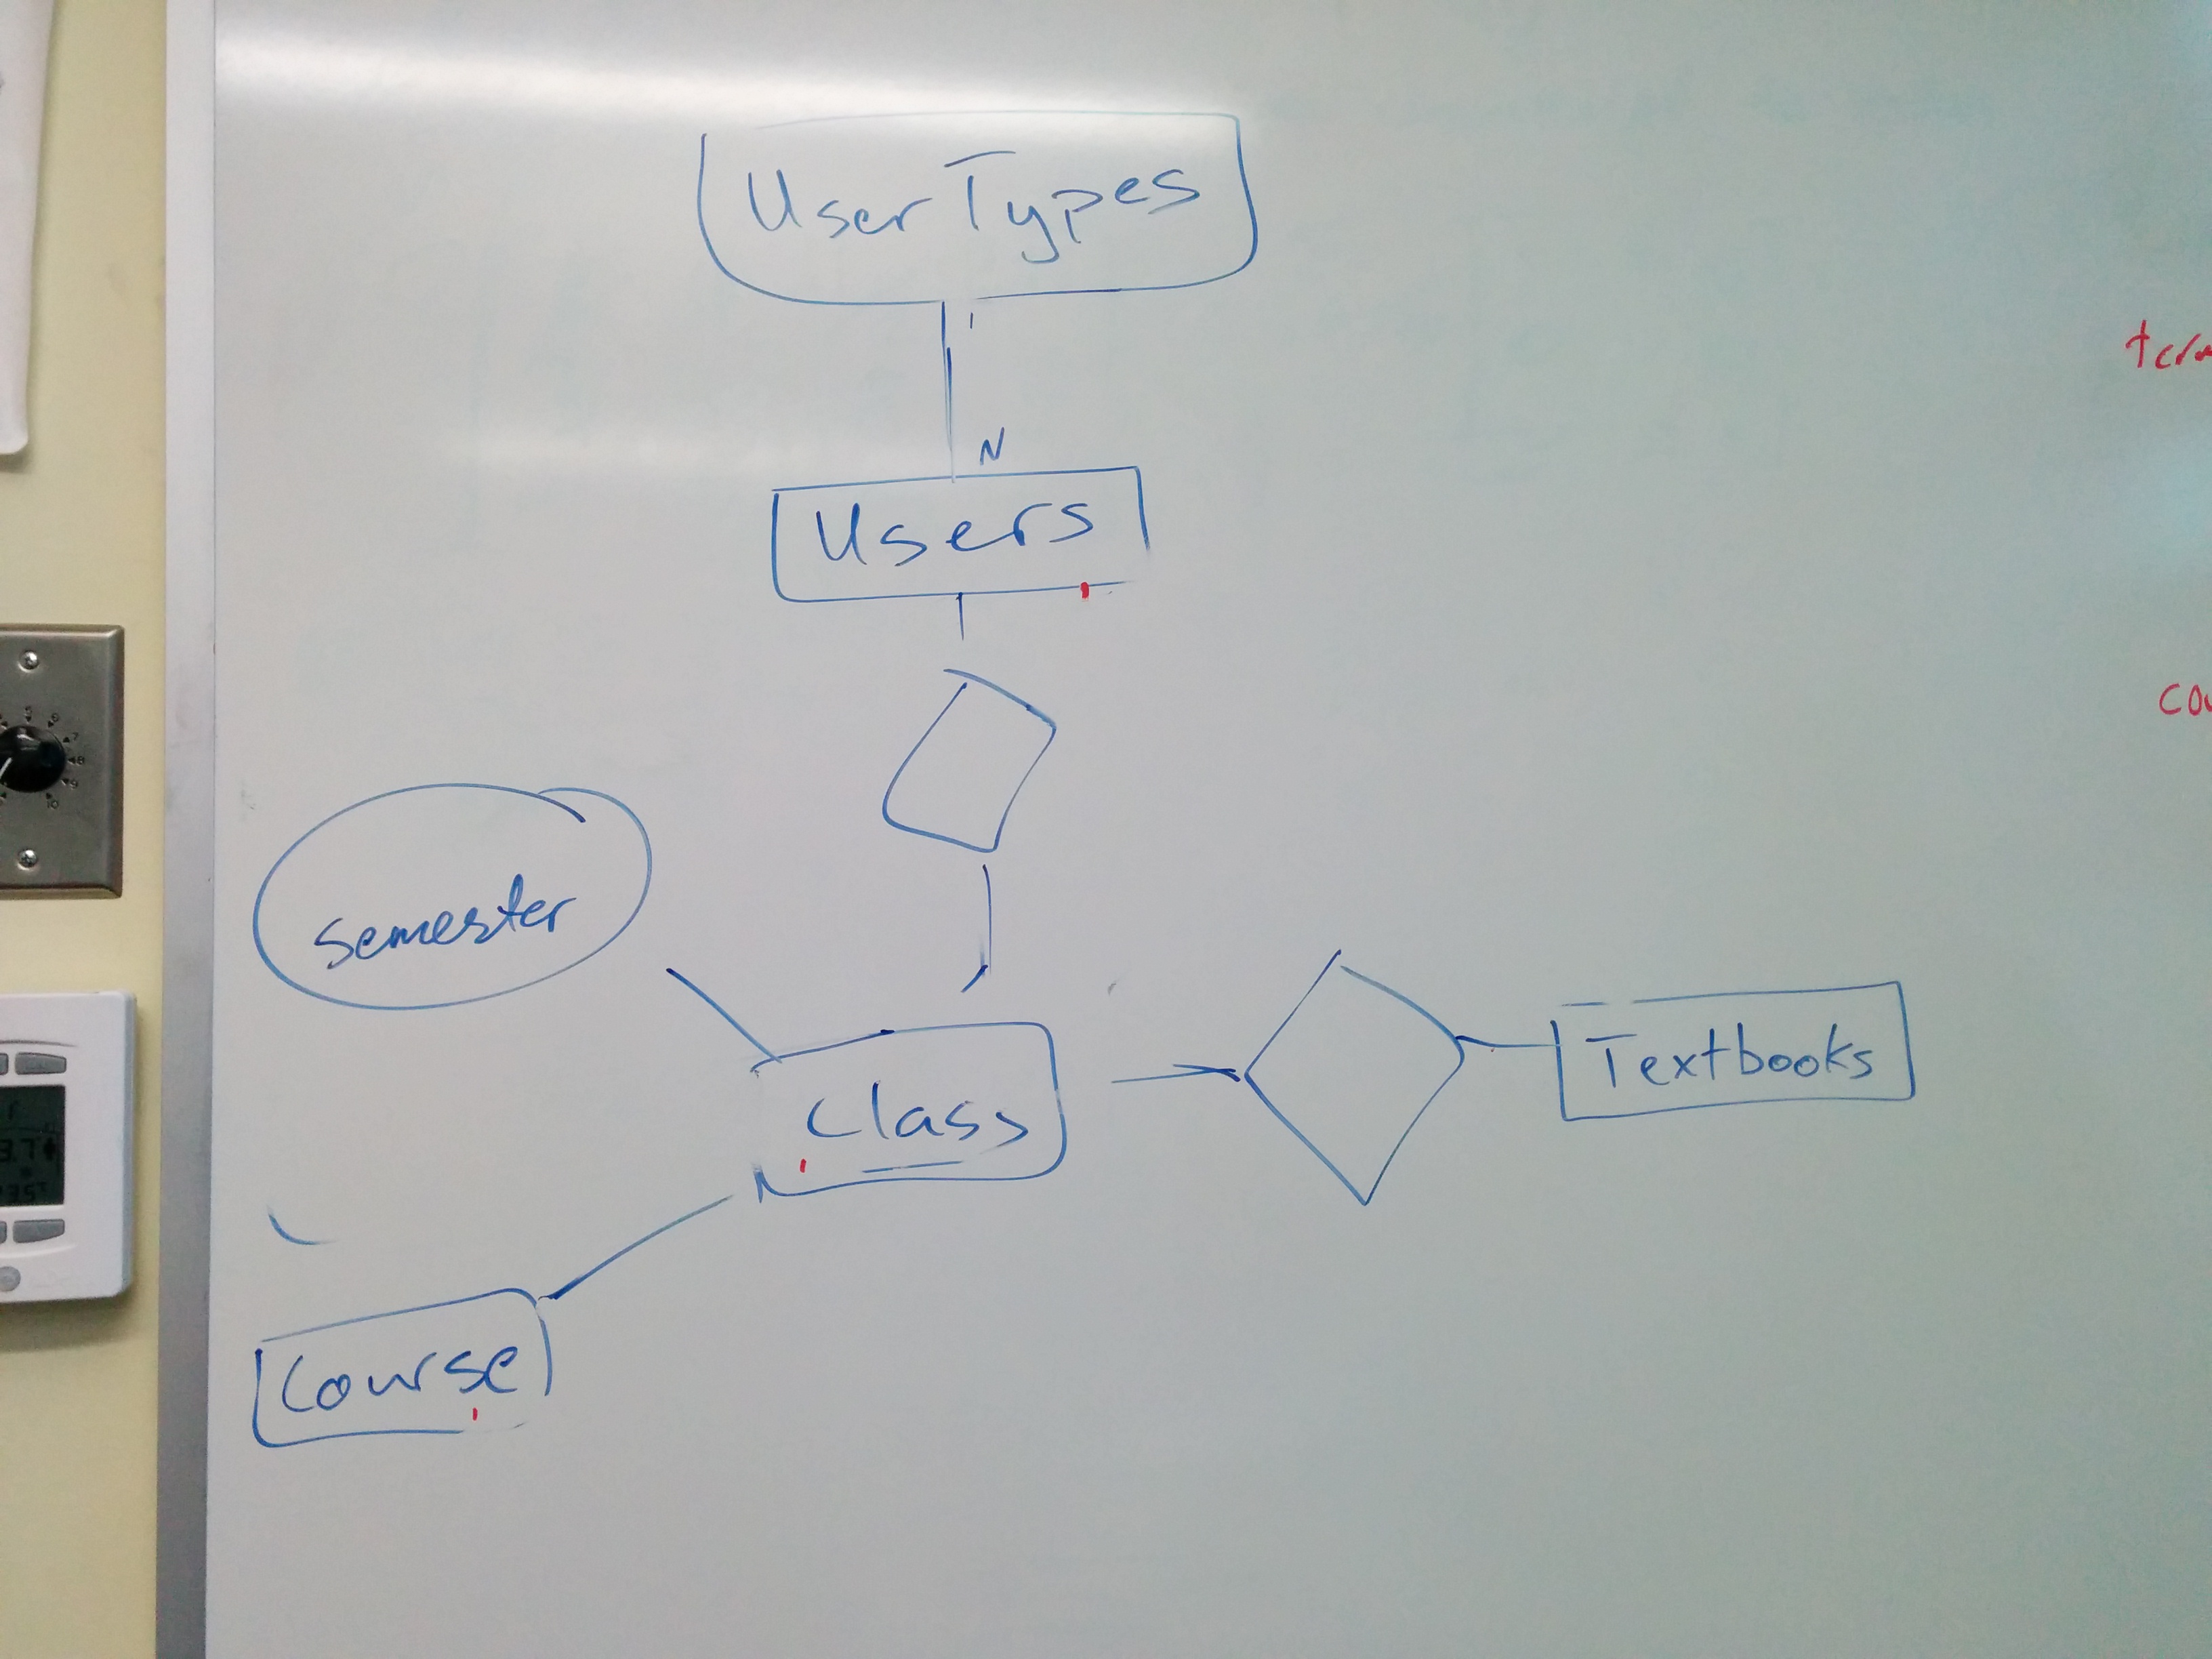 User Types
1
N
Users
semester
Class
Textbooks
Course